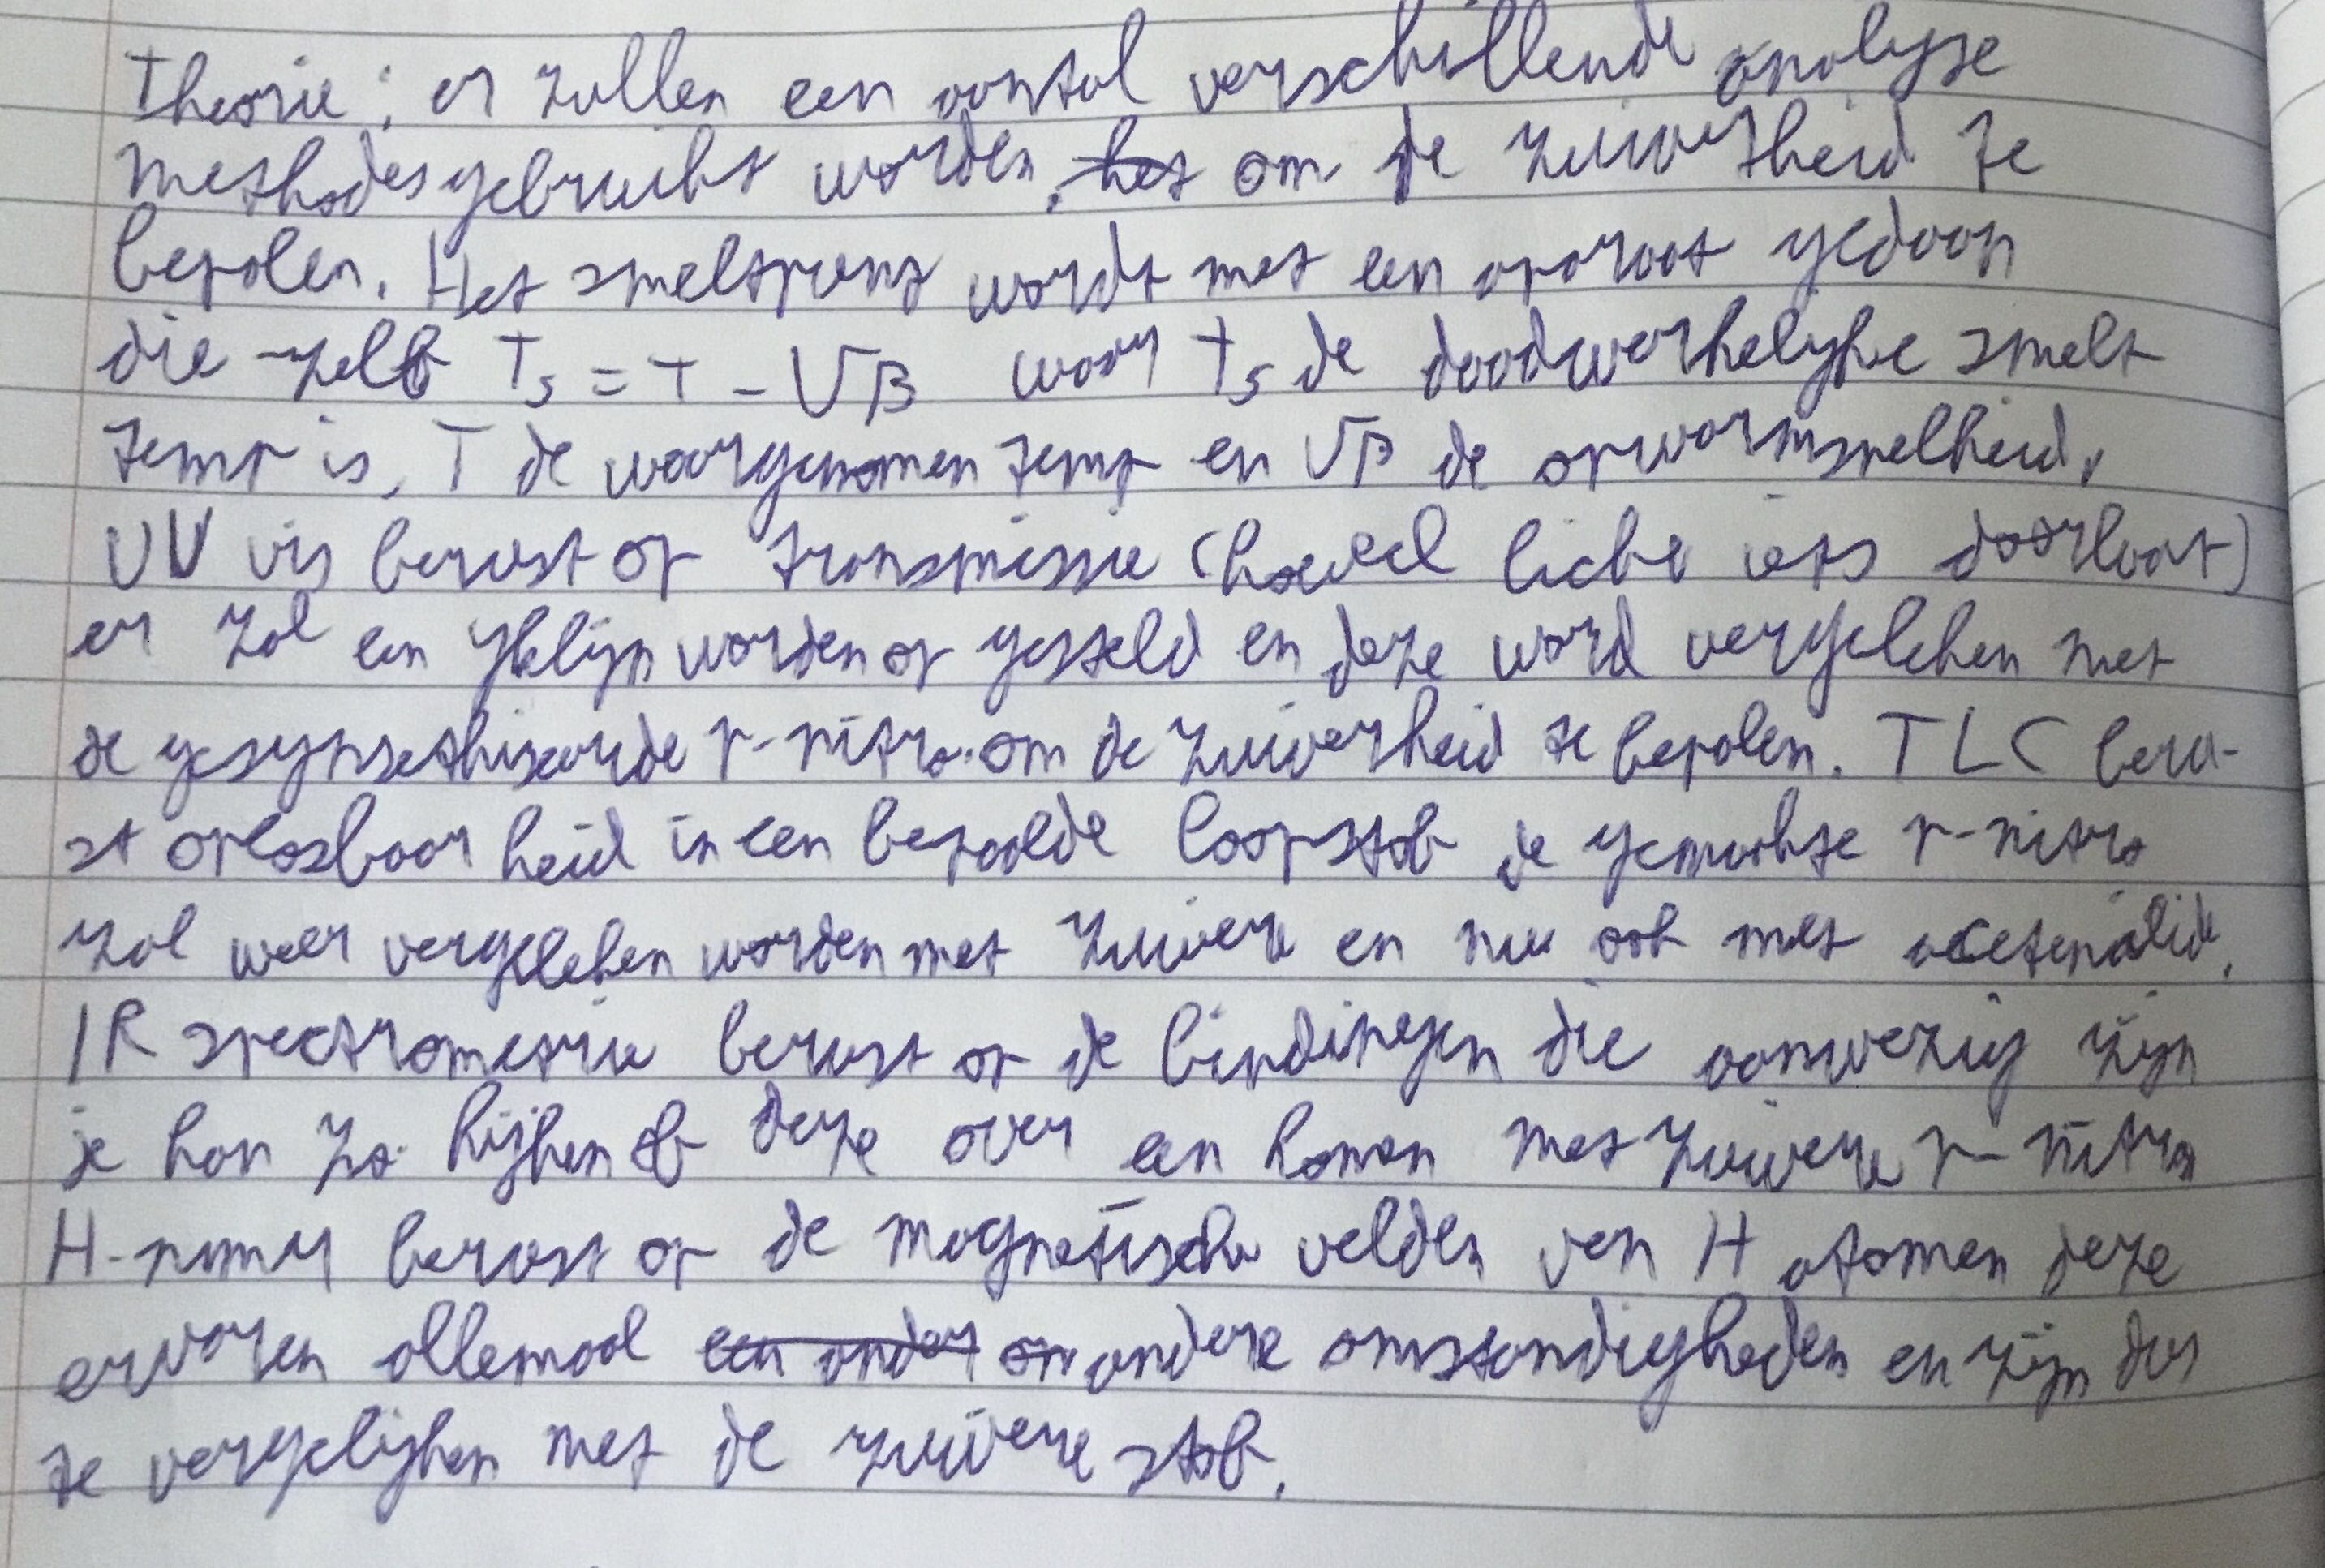 Theorie: er zullen een aantal verschillende analyse
methodes gebruikt worden, het om de zuiverheid te
bepalen. Het smeltpunt wordt met een aparaat gedaan
die zelf Ts = T - √β waar Ts de daadwerkelijke smelt
temp is, T de waargenomen temp en √β de opwarmsnelheid.
UV vis berust op transmissie (hoeveel licht iets doorlaat)
er zal een yklijn worden op gesteld en deze word vergeleken met
de gesynsethiseerde p-nitro om de zuiverheid te bepalen. TLC beru-
st oplosbaar heid in een bepaalde loopstof de gemaakte p-nitro
zal weer vergeleken worden met zuivere en nu ook met acetenalide.
IR spectrometrie berust op de bindingen die aanwezig zijn
je kan zo kijken of deze over een komen met zuivere p-nitro
H-nmr berust op de magnetische velden van H atomen deze
ervaren allemaal een ander on andere omstandigheden en zijn dus
te vergelijken met de zuivere stof.